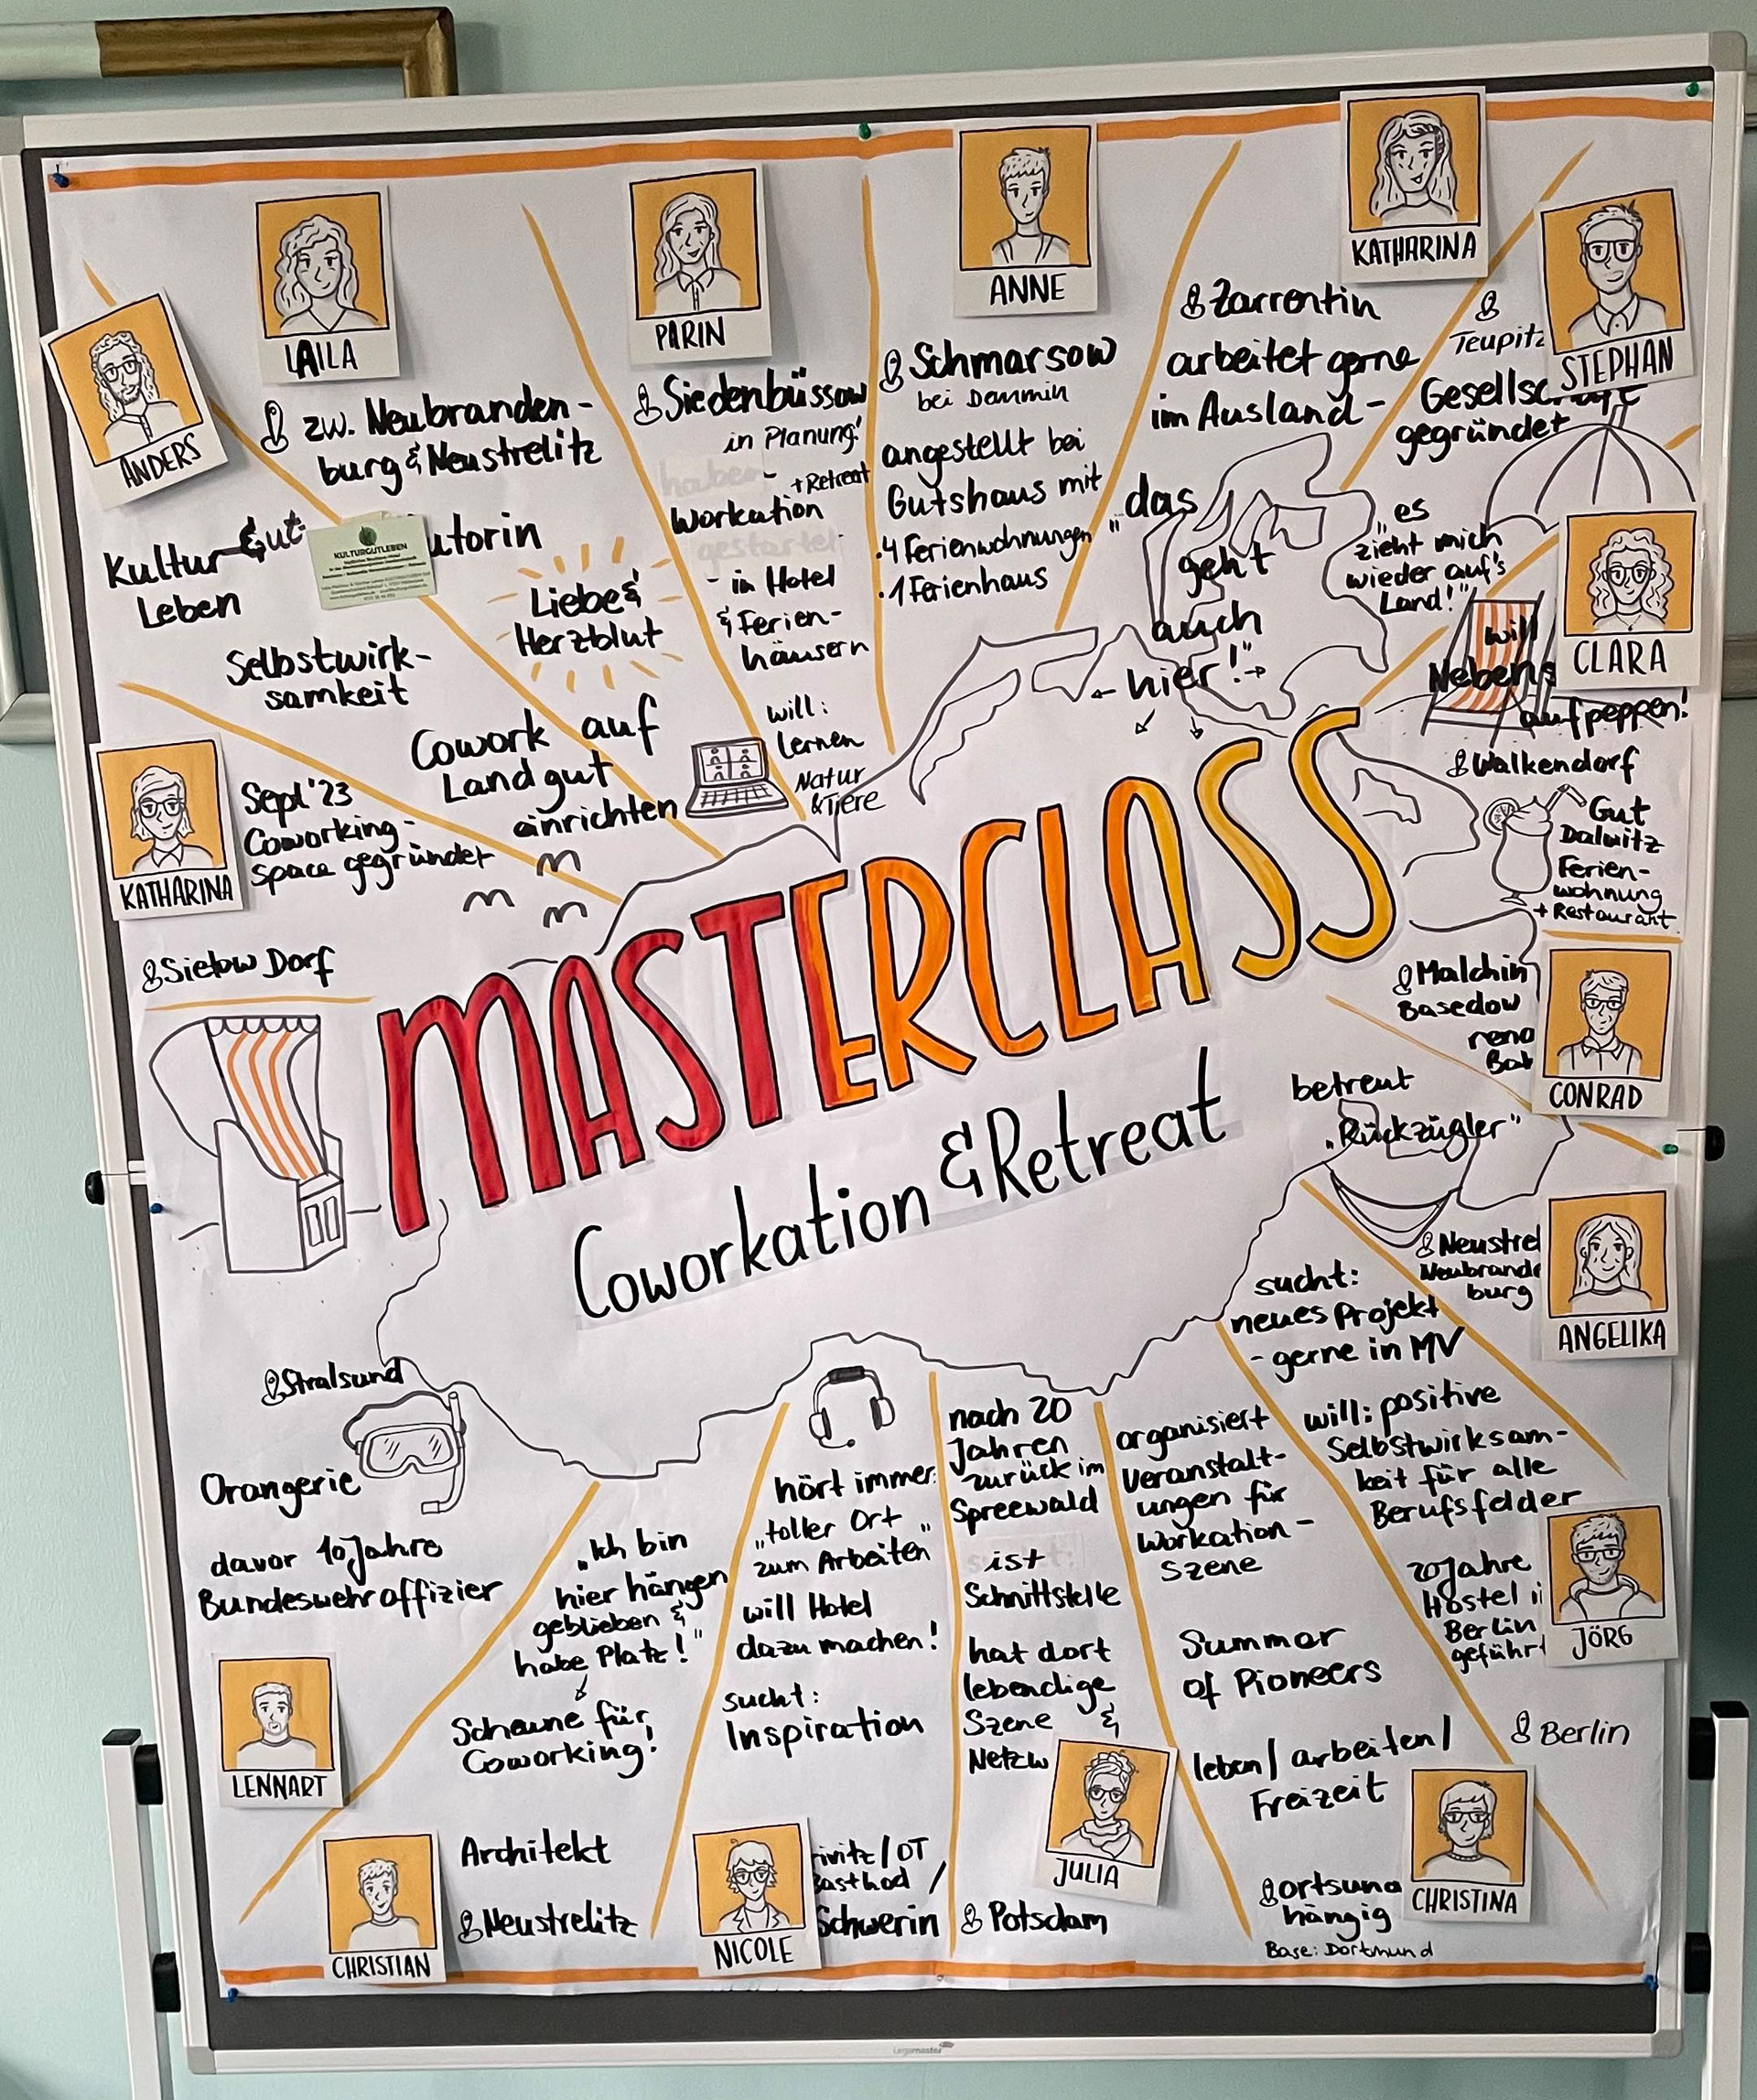 LAILA
zw. Neubranden-
burg & Neustrelitz
utorin
Liebe &
Herzblut
Cowork auf
Landgut
einrichten
PARIN
Siedenbüssow
in Planung!
haben
+ Retreat
Workation
gestartet
- in Hotel
& Ferien-
häusern
will:
lernen
Natur
& Tiere
ANNE
Schmarsow
bei Demmin
angestellt bei
Gutshaus mit
• 4 Ferienwohnungen
• 1 Ferienhaus
KATHARINA
Zarrentin
arbeitet gerne
im Ausland -
"das
geht
auch
hier!"
STEPHAN
Teupitz
Gesellschaft
gegründet
"es
zieht mich
wieder auf's
Land!"
CLARA
will
Nebens
aufpeppen!
Walkendorf
Gut
Dalwitz
Ferien-
wohnung
+ Restaurant
CONRAD
Malchin
Basedow
reno
betreut
"Rückzügler"
ANGELIKA
Neustrel
Neubrande
burg
sucht:
neues Projekt
- gerne in MV
JÖRG
will: positive
Selbstwirksam-
keit für alle
Berufsfelder
20 Jahre
Hostel i
Berlin
geführt
Berlin
CHRISTINA
organisiert
Veranstalt-
ungen für
Workation-
Szene
Summer
of Pioneers
leben/ arbeiten/
Freizeit
ortsuna
hängig
Base: Dortmund
JULIA
nach 20
Jahren
zurück im
Spreewald
ist
Schnittstelle
hat dort
lebendige
Szene &
Netzw
Potsdam
NICOLE
hört immer:
"toller Ort
zum Arbeiten"
will Hotel
dazu machen!
sucht:
Inspiration
ivitz/OT
Basthod /
Schwerin
CHRISTIAN
"Ich bin
hier hängen
geblieben &
habe Platz!"
Scheune für
Coworking!
Architekt
Neustrelitz
LENNART
Stralsund
Orangerie
davor 10 Jahre
Bundeswehroffizier
KATHARINA
Sept '23
Coworking-
space gegründet
Sielow Dorf
ANDERS
Kultur-Gut-
Leben
KULTURGUTLEBEN
Selbstwirk-
samkeit
MASTERCLASS
Coworkation & Retreat
Legamaster